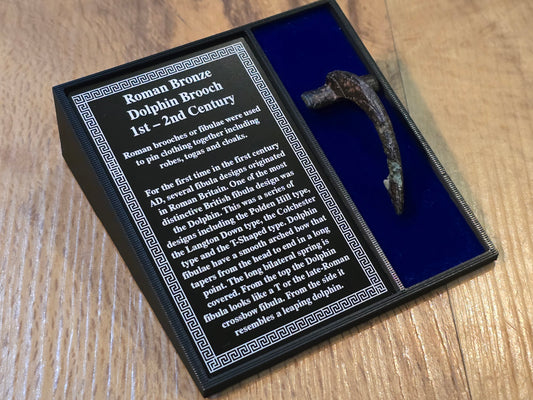 Roman Bronze
Dolphin Brooch
1st – 2nd Century
Roman brooches or fibulae were used
to pin clothing together including
robes, togas and cloaks.
For the first time in the first century
AD, several fibula designs originated
in Roman Britain. One of the most
distinctive British fibula design was
the Dolphin. This was a series of
designs including the Polden Hill type,
the Langton Down type, the Colchester
type and the T-Shaped type. Dolphin
fibulae have a smooth arched bow that
tapers from the head to end in a long
point. The long bilateral spring is
covered. From the top the Dolphin
fibula looks like a T or the late-Roman
crossbow fibula. From the side it
resembles a leaping dolphin.